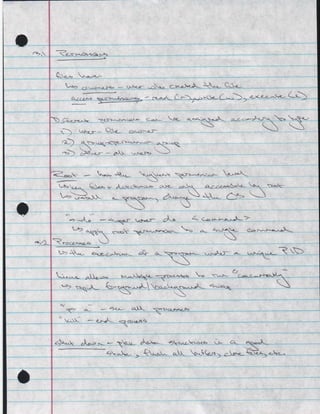 3.1 Permissions
files have:
↳ owners - user who created the file
access permissions - read (r), write (w), execute (x)
Different permissions can be assigned according to type
1) user - file owner
2) group - permission group
3) other - all users
Root - has the highest permission level
↳ key files + directories are only accessible by root
↳ install a program, change the OS
"sudo" - super user do <command>
↳ apply root permission to a single command
3.2 Processes
↳ the execution of a program under a unique PID
Linux allows multiple processes to run "concurrently"
↳ rapid foreground/background swap
"ps a" - see all processes
"kill" - end process
Shut down - place data structures in a good
state, flush all buffers, close files, etc.